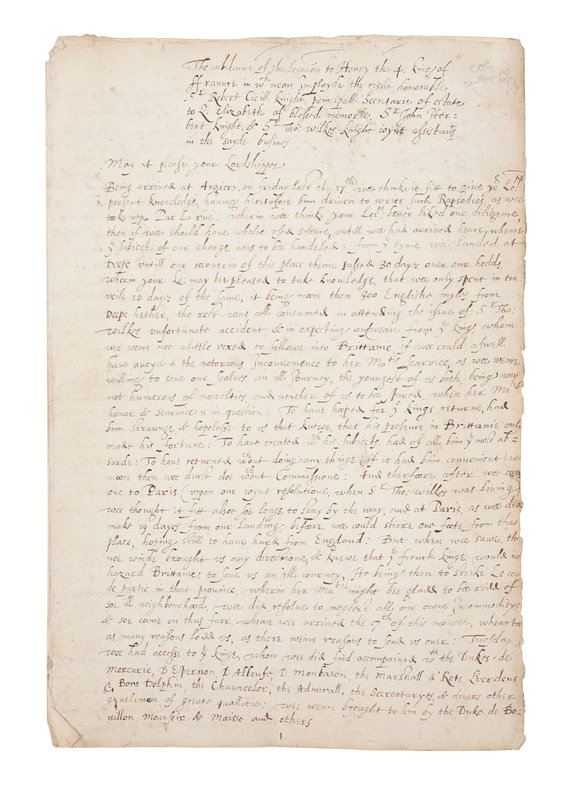 The substance of the Legacon to Henry the 4. King of
ffraunce in wch wear imployde the right honorable
Sr Robert Cicill knight, principall Secretarie of estate
to Q. Elizabeth of blessed memorie, Sr John Her-
bert knight, & Sr Tho: Wilkes knight ioynt assistants
in the sayde busines
May it please your Lordshipps
Being arrived at Angiers on friday last the 17th wee thinke it fitt to give yr Lopps
present knowledg, haveing heretofore binn driven to write such Rapsodies as wee
take upp Par La rue: wherin wee thinke your Lopps better liked our diligence,
then if wee should have whollie used silence, untill wee had arrived heare, wheare
ye subiect of our charge was to be handeled: from ye tyme wee Landed at
Deepe untill our recoverie of this place theare passed 30 dayes over our hedds,
wherin your Lo: may bee pleased to take knowledge, that wee only spent in tra
veile 10 dayes of the same, it being more then 300 Englishe myles from
Deepe hether, the rest was all consumed in attending the issue of Sr Tho:
Wilkes unfortunate accident & in expecting aunswear from ye kinge whom
wee weare not a little vexed to followe into Brittanie, if wee could aswell
have avoyded the notorious Inconvenience to her Maties Searvice, as wee wear
willinge to save our sealves an ill Journey, the youngest of us both being now
not humerous of novelties and neither of us to bee spared when her Maties
honor & searvice is in question: To have hoped for ye kings returne, had
binn straunge, & hopelesse to us that knewe, that his presence in Brittanie only
made his fortune: To have treated wth his subiects, had of all binn ye most ab-
surde: To have returned wthout doing any thinge (if it had binn convenient) was
more then wee durst doe wthout Commissione: And thearfore after wee
out to Paris (upon our ioynt resolutione, when Sr Tho: Wilkes was living)
wee thought it fitt alsoe soe longe to stay by the way, and at Paris, as wee did
make 19 dayes from our Landing: before wee could stirre one foote from that
place, hoping still to have hard from England: But when wee sawe, that
noe winde brought us any directione, & knewe that ye french kinge would not
hazard Brittanie to save us an ill iourney, He beinge then to strike Le coup
de partie in that province, wherin her Matie might bee glad to bee ridd of
soe ill neighbourhood, wee did resolve to neglect all our owne Incommoditye
& soe came on this furr, wheare wee arrived the 17th of this month, whearto
as many reasons ledd us, as there weare reasons to send us over: Tuesday
wee had access to ye kinge, whom wee did find accompained wth the Dukes de
Mercurie, D Epernon, D Albeufe, D Monbason, the Marshall d' Rets,
& Bois Dolphin, the Chauncelor, the Admirall, the Secreataryes & divers other
gentlemen of greate qualitie: wee weare brought to him by the Duke de Bo-
uillon, Mounsieur de Maisse and others
1